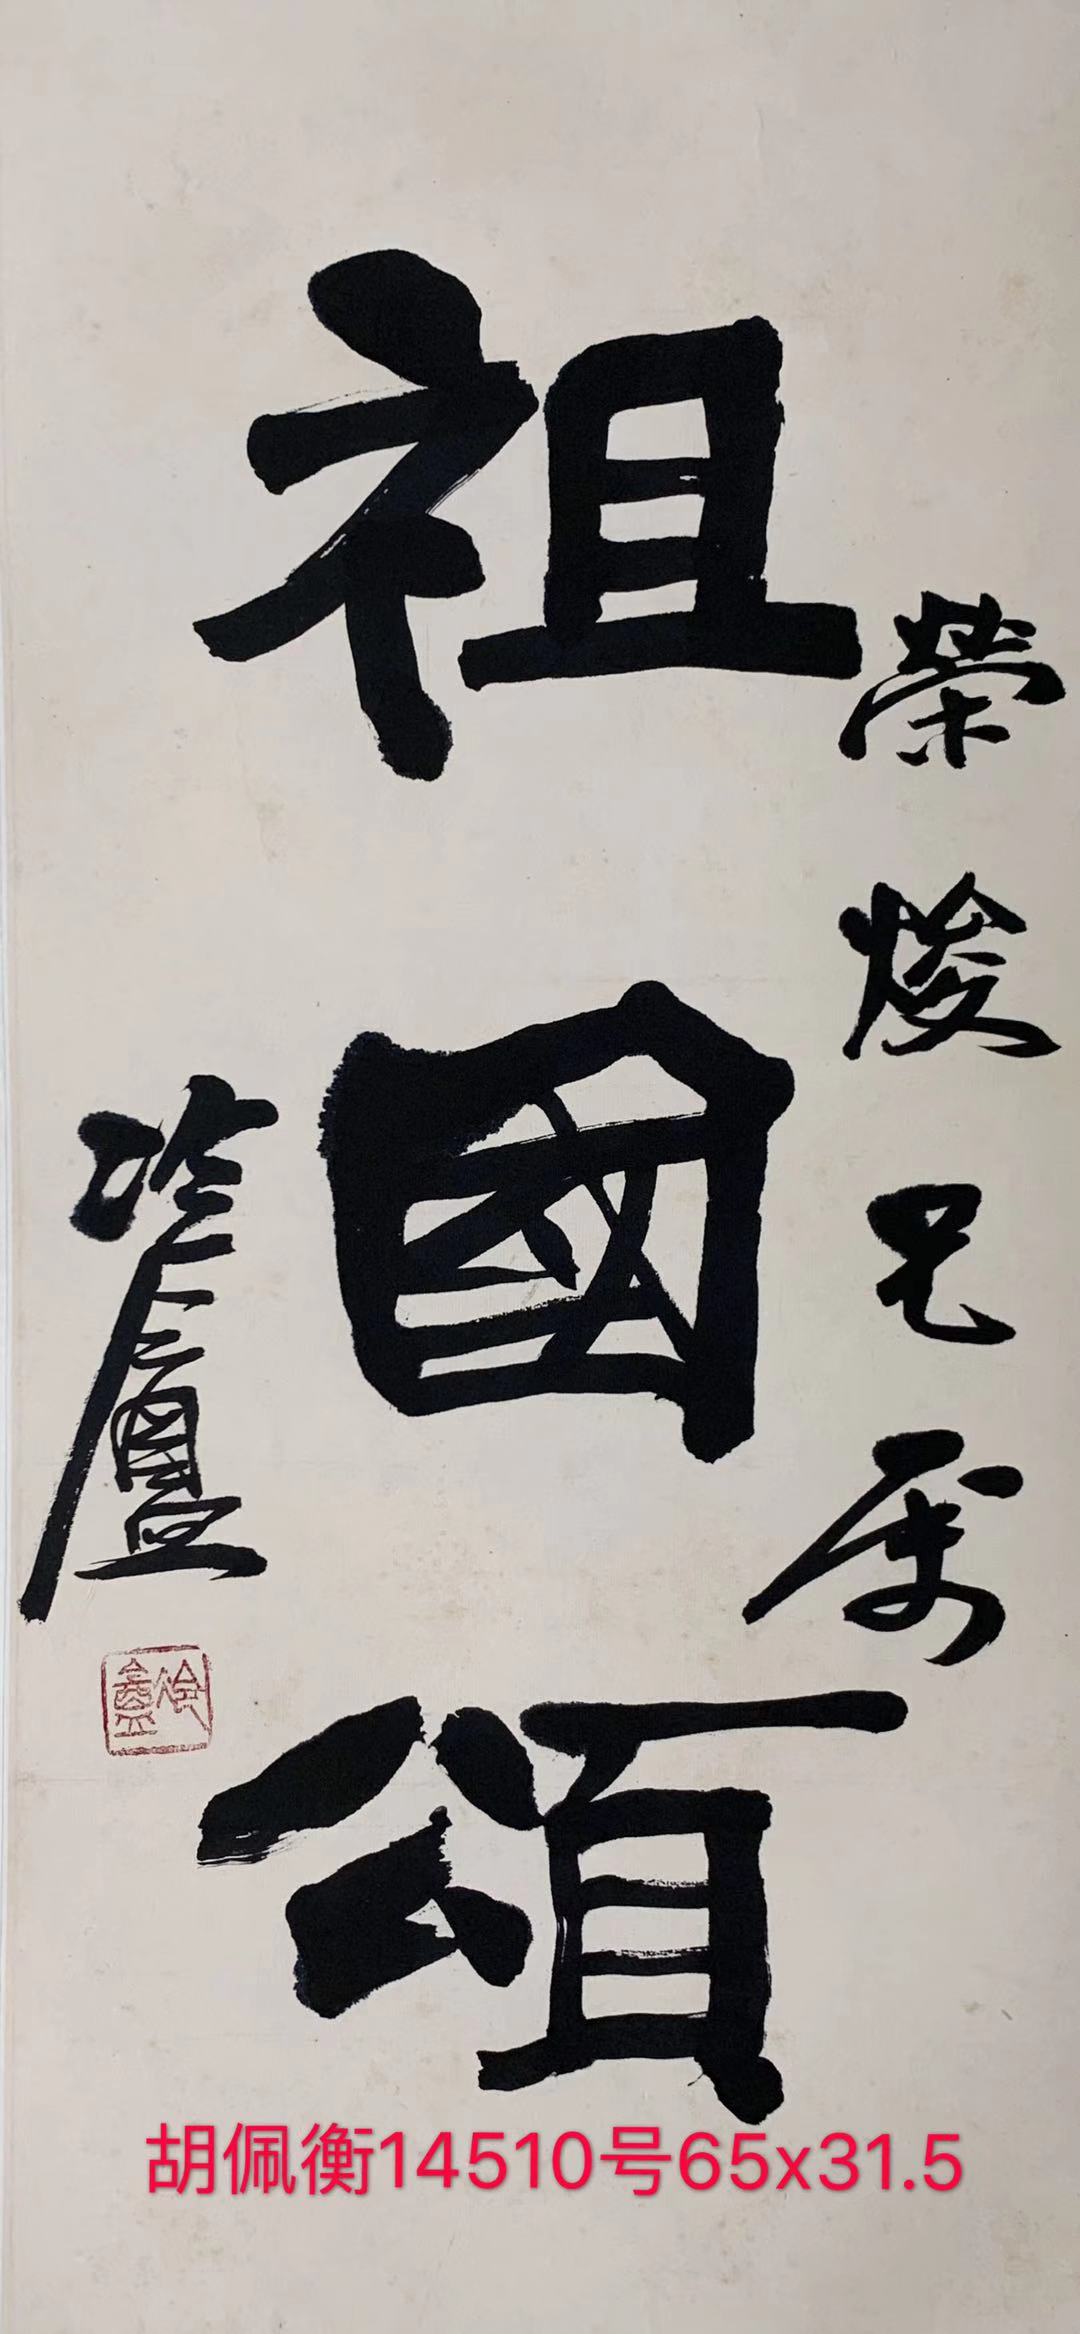 榮焌兄属
祖國頌
冷廬
胡佩衡14510号65x31.5